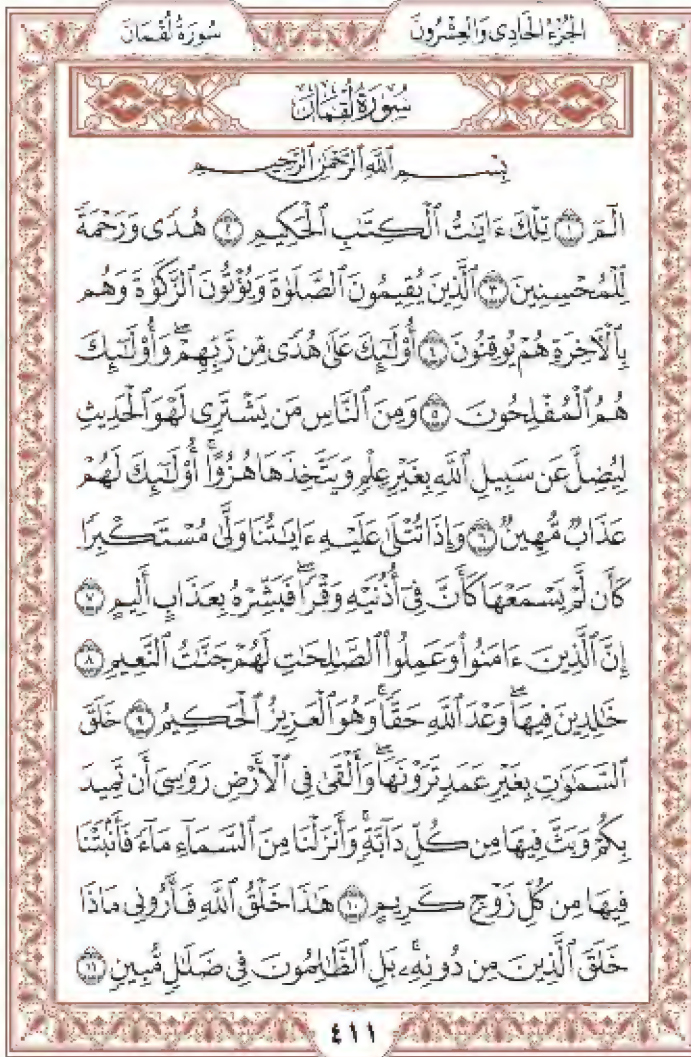 الجُزْءُ الحَادِي وَالعِشْرُونَ سُورَةُ لُقْمَان
سُورَةُ لُقْمَان
بِسْمِ ٱللَّهِ ٱلرَّحْمَٰنِ ٱلرَّحِيمِ
الٓمٓ ١ تِلْكَ ءَايَٰتُ ٱلْكِتَٰبِ ٱلْحَكِيمِ ٢ هُدًى وَرَحْمَةً
لِّلْمُحْسِنِينَ ٣ ٱلَّذِينَ يُقِيمُونَ ٱلصَّلَوٰةَ وَيُؤْتُونَ ٱلزَّكَوٰةَ وَهُم
بِٱلْأٓخِرَةِ هُمْ يُوقِنُونَ ٤ أُوْلَٰٓئِكَ عَلَىٰ هُدًى مِّن رَّبِّهِمْۖ وَأُوْلَٰٓئِكَ
هُمُ ٱلْمُفْلِحُونَ ٥ وَمِنَ ٱلنَّاسِ مَن يَشْتَرِي لَهْوَ ٱلْحَدِيثِ
لِيُضِلَّ عَن سَبِيلِ ٱللَّهِ بِغَيْرِ عِلْمٍ وَيَتَّخِذَهَا هُزُوًاۚ أُوْلَٰٓئِكَ لَهُمْ
عَذَابٌ مُّهِينٌ ٦ وَإِذَا تُتْلَىٰ عَلَيْهِ ءَايَٰتُنَا وَلَّىٰ مُسْتَكْبِرًا
كَأَن لَّمْ يَسْمَعْهَا كَأَنَّ فِيٓ أُذُنَيْهِ وَقْرًاۖ فَبَشِّرْهُ بِعَذَابٍ أَلِيمٍ ٧
إِنَّ ٱلَّذِينَ ءَامَنُواْ وَعَمِلُواْ ٱلصَّٰلِحَٰتِ لَهُمْ جَنَّٰتُ ٱلنَّعِيمِ ٨
خَٰلِدِينَ فِيهَاۖ وَعْدَ ٱللَّهِ حَقًّاۚ وَهُوَ ٱلْعَزِيزُ ٱلْحَكِيمُ ٩ خَلَقَ
ٱلسَّمَٰوَٰتِ بِغَيْرِ عَمَدٍ تَرَوْنَهَاۖ وَأَلْقَىٰ فِي ٱلْأَرْضِ رَوَٰسِيَ أَن تَمِيدَ
بِكُمْ وَبَثَّ فِيهَا مِن كُلِّ دَآبَّةٍۚ وَأَنزَلْنَا مِنَ ٱلسَّمَآءِ مَآءً فَأَنۢبَتْنَا
فِيهَا مِن كُلِّ زَوْجٍ كَرِيمٍ ١٠ هَٰذَا خَلْقُ ٱللَّهِ فَأَرُونِي مَاذَا
خَلَقَ ٱلَّذِينَ مِن دُونِهِۦۚ بَلِ ٱلظَّٰلِمُونَ فِي ضَلَٰلٍ مُّبِينٍ ١١
٤١١